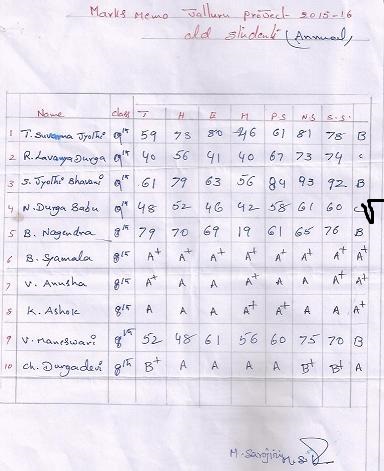 Marks Memo Valluru project 2015-16
old students (Annual)
Name class T H E M P.S N.S S.S.
1 T. Suvarna Jyothi 9th 59 78 80 46 61 81 78 B
2 R. Lavanya Durga 9th 40 56 41 40 67 73 74 C
3 S. Jyothi Bhavani 9th 61 79 63 56 84 93 92 B
4 N. Durga Babu 9th 48 52 46 42 58 61 60 C
5 B. Nagendra 9th 79 70 69 19 61 65 76 B
6 B. Syamala 8th A+ A+ A+ A+ A+ A+ A+ A+
7 V. Anusha 8th A+ A A A+ A A A+ A+
8 K. Ashok 8th A A A A+ A A A+ A+
9 V. Maneswari 9th 52 48 61 56 60 75 70 B
10 Ch. Durgadevi 8th B+ A A A A B+ B+ A
M. Sarojini